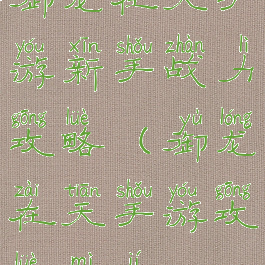 御龙在天手
yóu xīn shǒu zhàn lì
游新手战力
gōng lüè yù lóng
攻略(御龙
zài tiān shǒu yóu gōng
在天手游攻
lüè mì jí